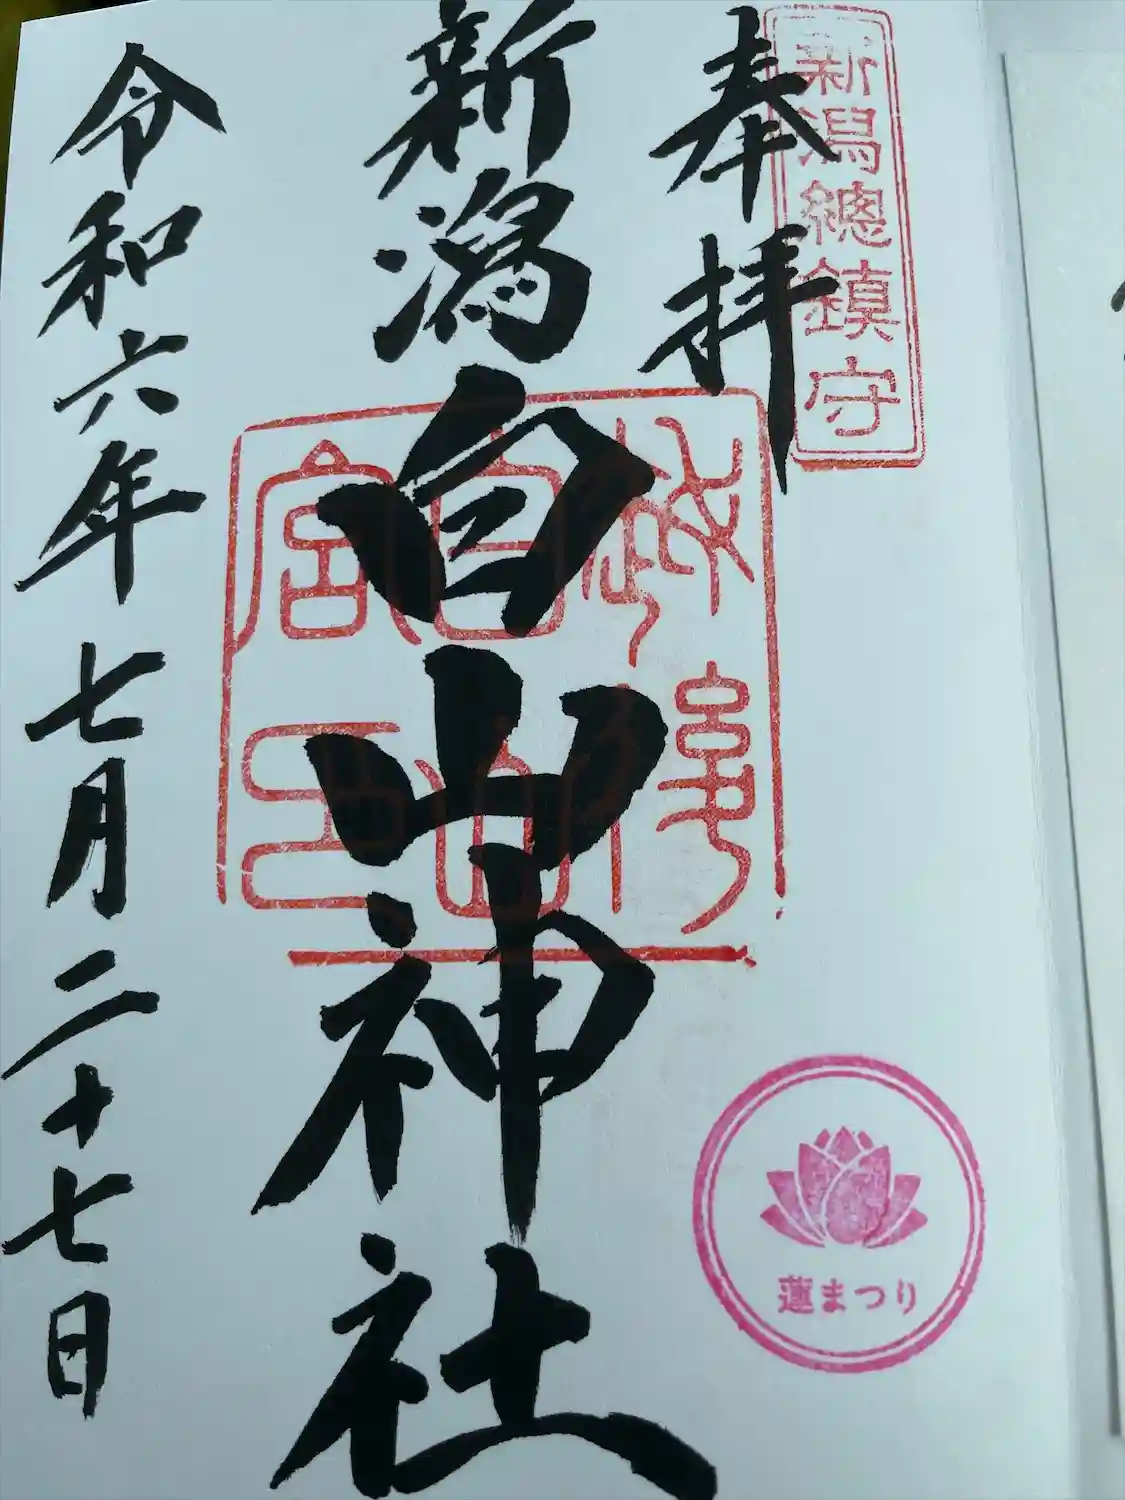 奉拝
新潟總鎮守
新潟白山神社
令和六年七月二十七日
蓮まつり